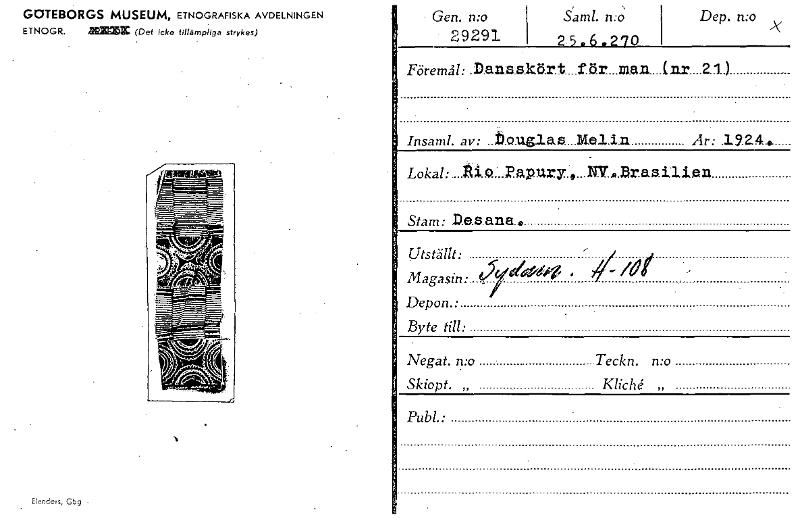 GÖTEBORGS MUSEUM, ETNOGRAFISKA AVDELNINGEN
ETNOGR. (Det icke tillämpliga strykes)
Elenders, Gbg
Gen. n:o Saml. n:o Dep. n:o
29291 25.6.270 X
Föremål: Dansskört för man (nr 21)
Insaml. av: Douglas Melin År: 1924.
Lokal: Rio Papury, NV.Brasilien
Stam: Desana.
Utställt:
Magasin: Sydam. H-108
Depon.:
Byte till:
Negat. n:o Teckn. n:o
Skiopt. „ Kliché „
Publ.: